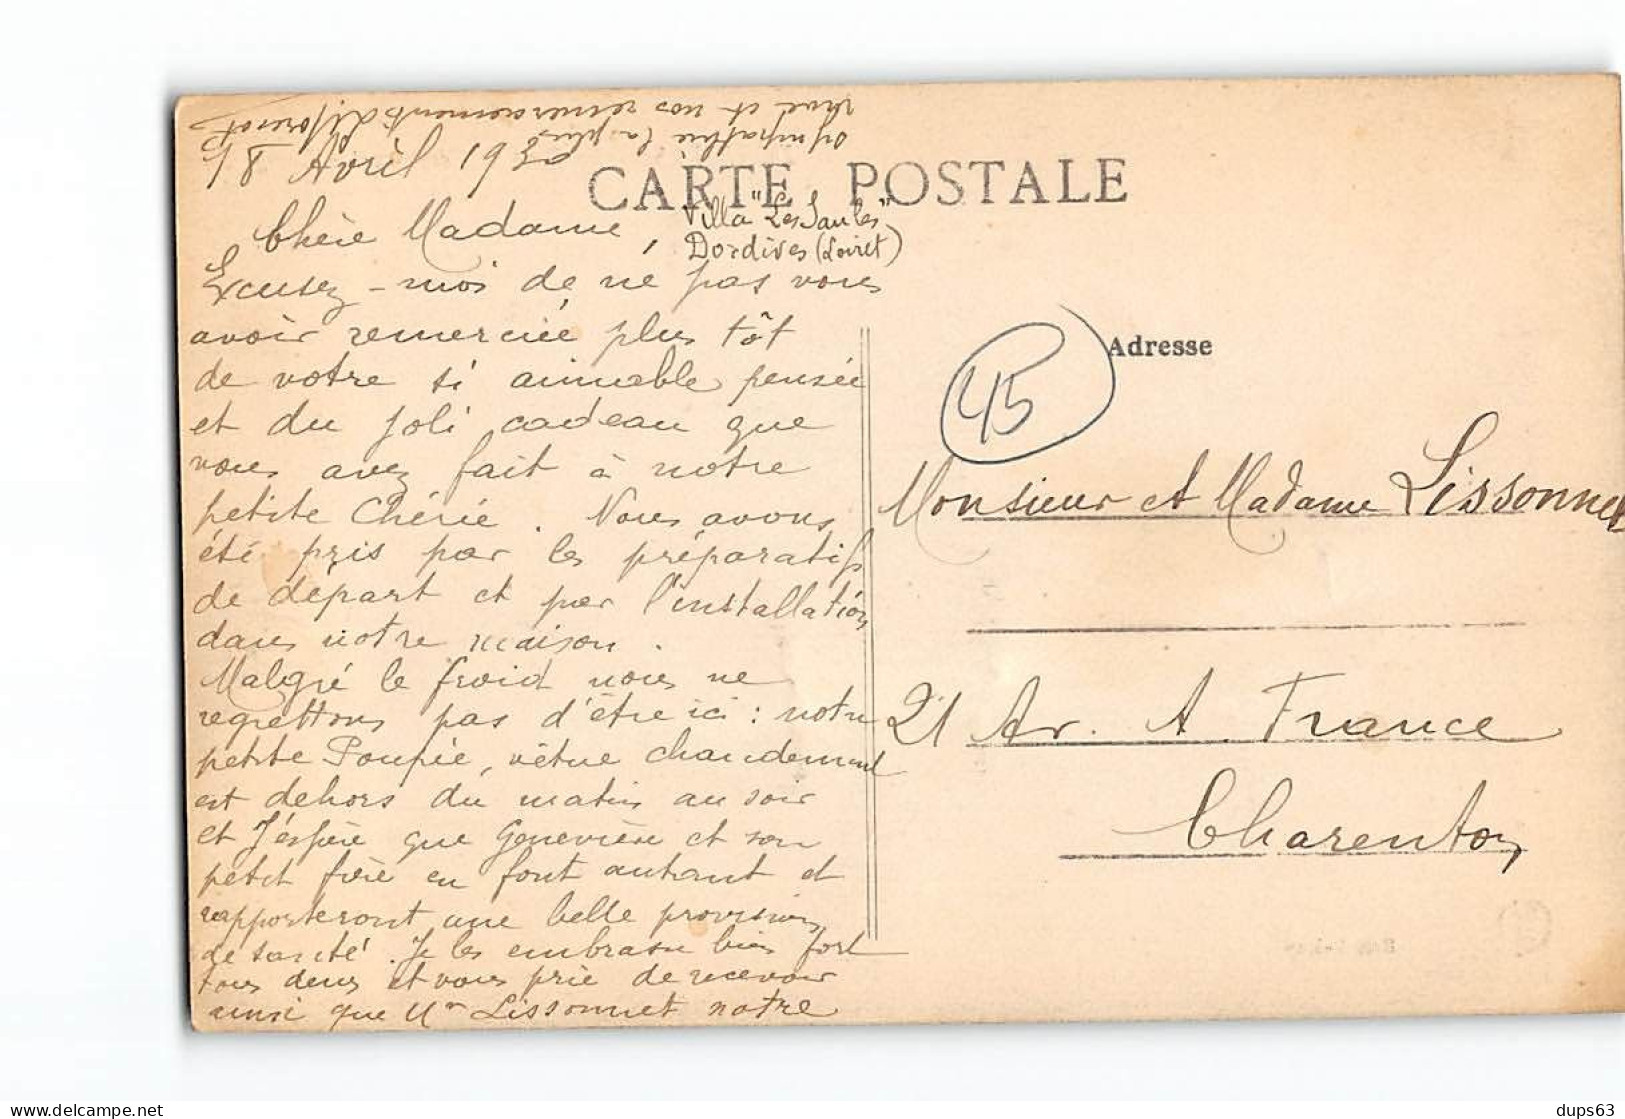 18 Avril 1930
CARTE POSTALE
Villa "Les Saules"
Dordives (Loiret)
Chère Madame,
Excusez-moi de ne pas vous
avoir remerciée plus tôt
de votre si aimable pensée
et du joli cadeau que
vous avez fait à notre
petite Chérie. Nous avons
été pris par les préparatifs
de départ et par l'installation
dans notre maison.
Malgré le froid nous ne
regrettons pas d'être ici : notre
petite Poupée, vêtue chaudement
est dehors du matin au soir
et J'espère que Geneviève et son
petit frère en font autant et
rapporteront une belle provision
de santé. Je les embrasse bien fort
tous deux et vous prie de recevoir
ainsi que Mr Lissonnet notre
sympathie la plus
vive et nos remerciements
Adresse
45
Monsieur et Madame Lissonnet
21 Av. A. France
Charenton
dups63